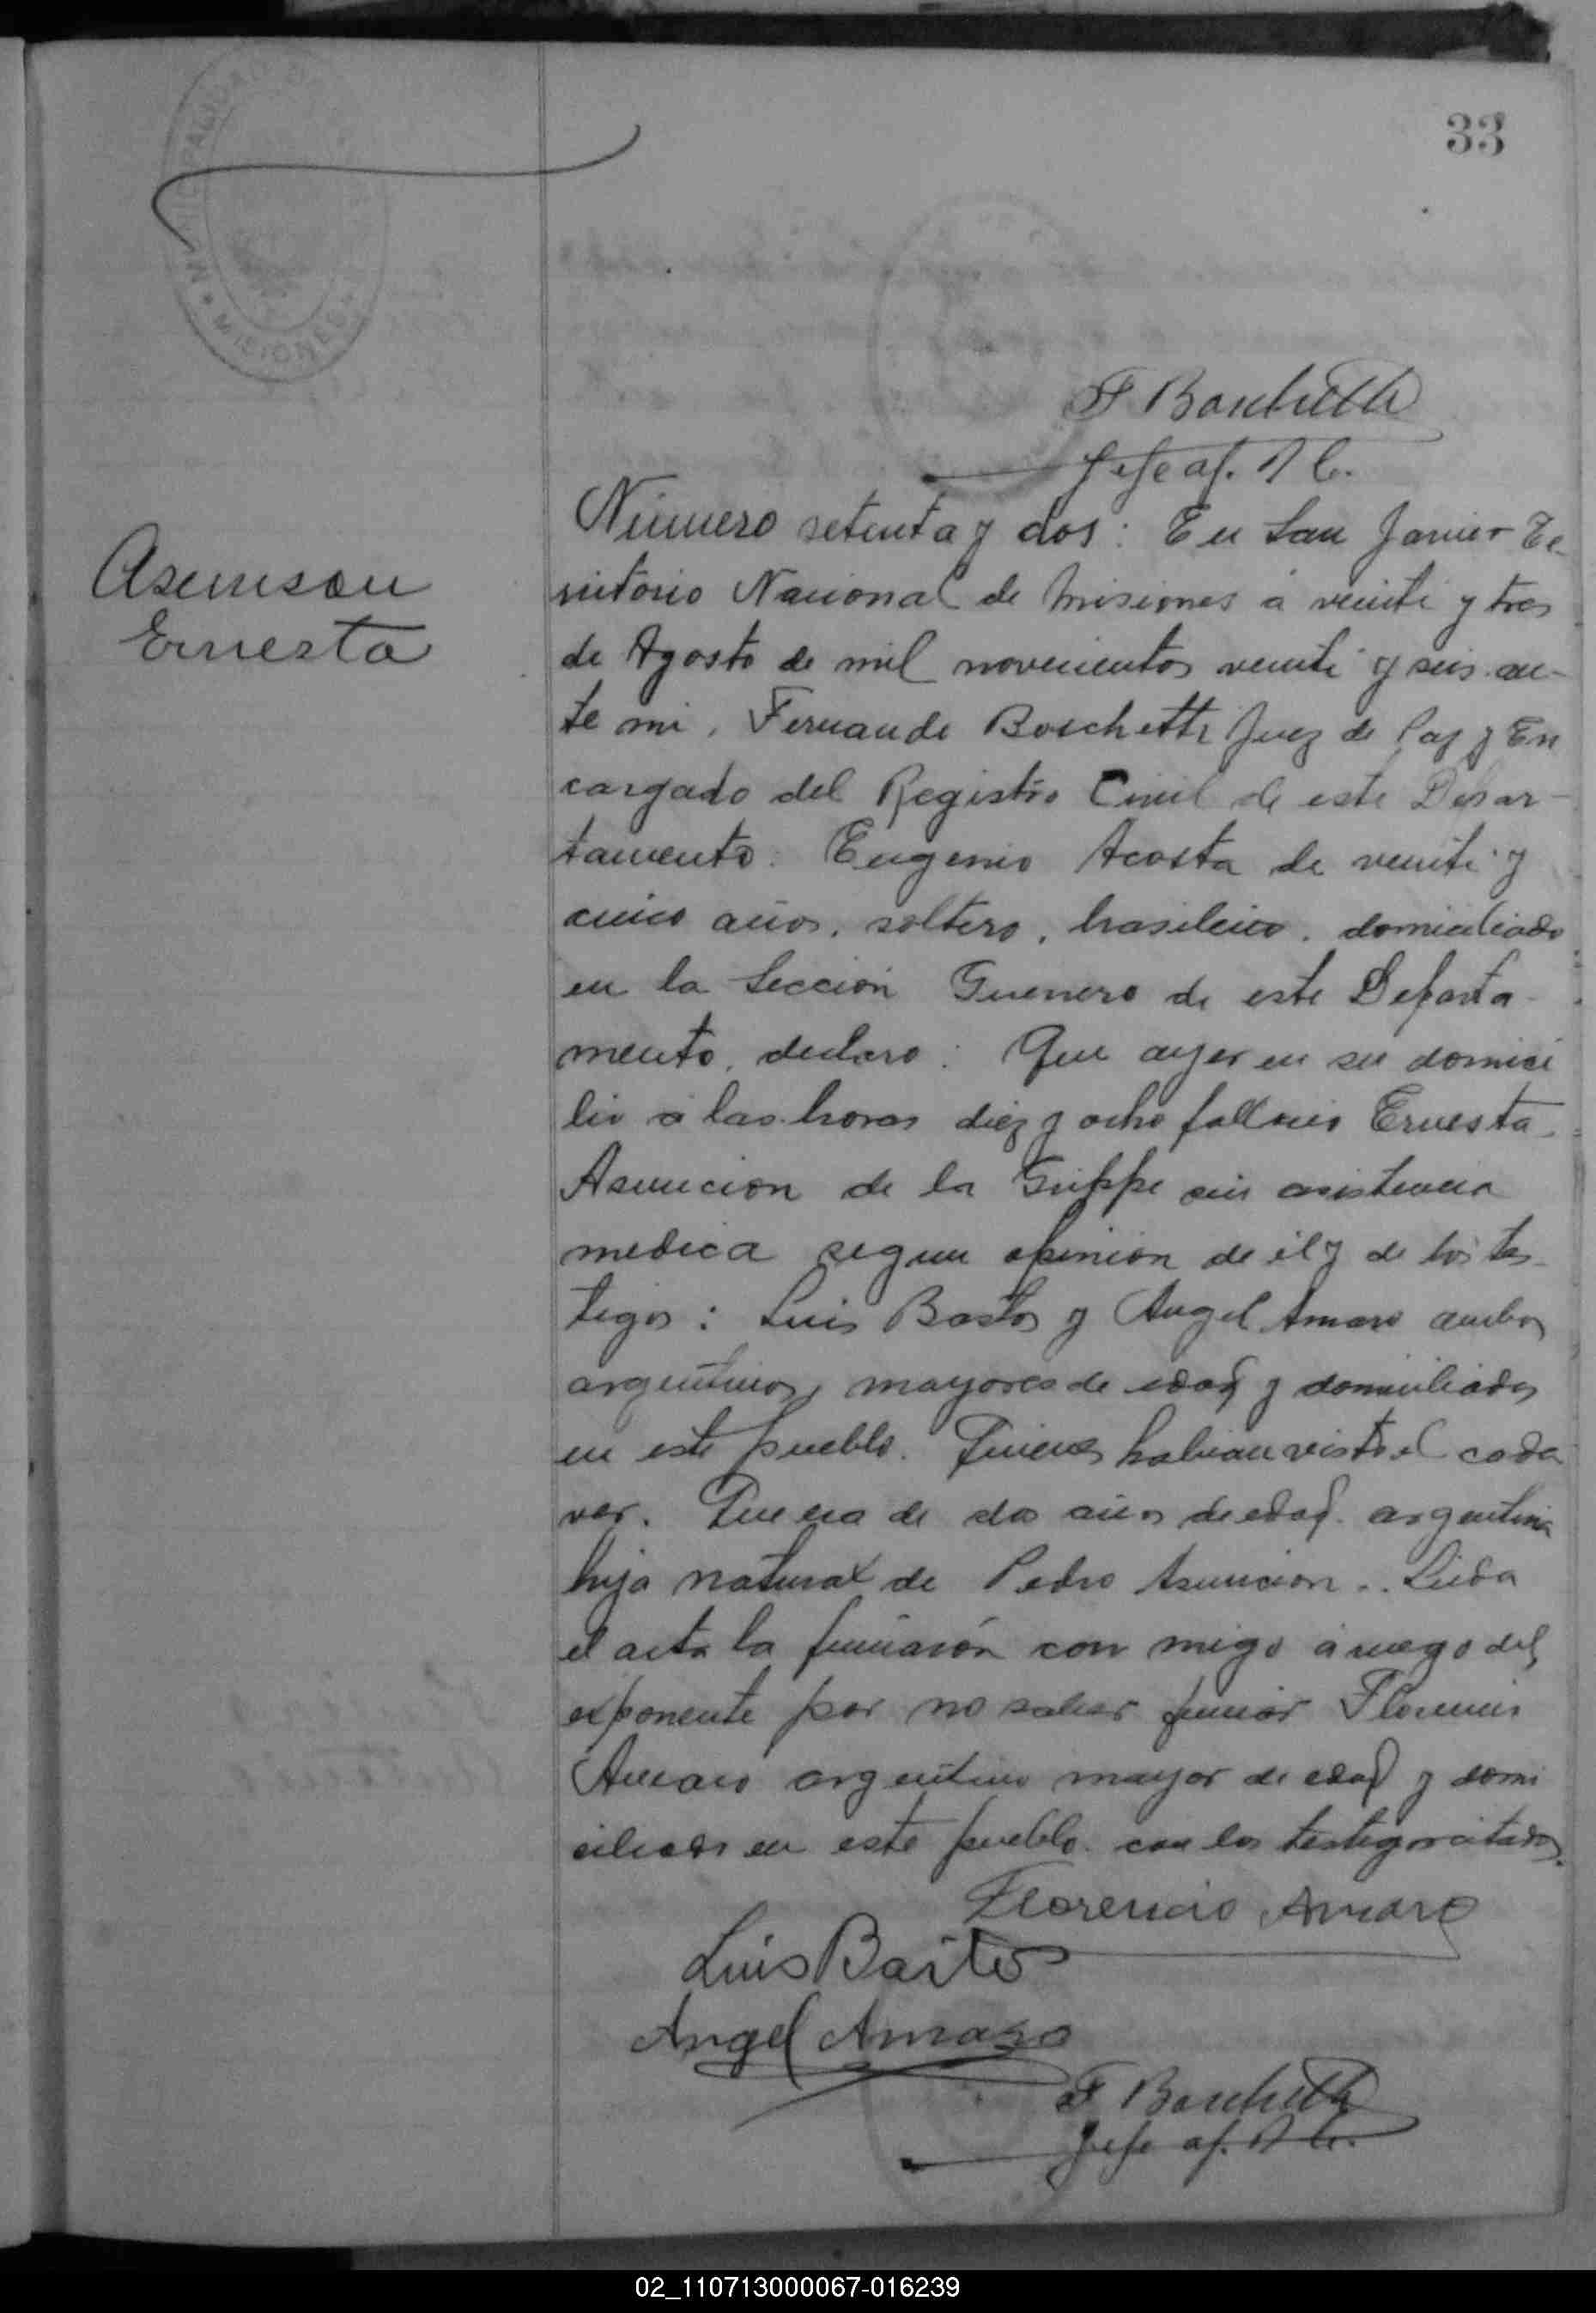 33
MUNICIPALIDAD
MISIONES
F Boschetti
Jefe of. R C.
Asunsion
Ernesta
Número setenta y dos: En San Javier Te-
rritorio Nacional de Misiones á veinte y tres
de Agosto de mil novecientos veinte y seis. an-
te mi, Fernando Boschetti Juez de Paz y En
cargado del Registro Civil de este Depar-
tamento. Eugenio Acosta de veinte y
cinco años, soltero, brasilero, domiciliado
en la Sección Guerrero de este Departa-
mento, declaro: Que ayer en su domici
lio á las horas diez y ocho falleció Ernesta
Asuncion de la Grippe sin asistencia
medica segun opinion de él y de los tes-
tigos: Luis Bastos y Angel Amaro ambos
argentinos, mayores de edad y domiciliados
en este pueblo. Quienes habian visto el cada
ver. Que era de dos años de edad. argentina
hija natural de Pedro Asuncion.. Leida
el acta la firmarón con migo á ruego del
exponente por no saber firmar Florencio
Amaro argentino mayor de edad y domi
ciliado en este pueblo. con los testigos citados.
Florencio Amaro
Luis Bastos
Angel Amaro
F Boschetti
Jefe of. R C.
02_110713000067-016239